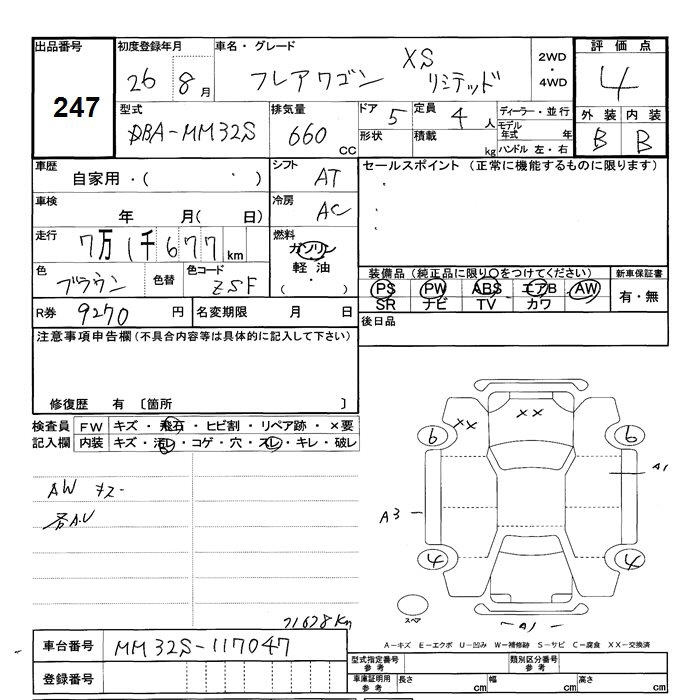 出品番号 初度登録年月 車名・グレード 評価点
247
26 8月 フレアワゴン XS リミテッド 2WD・4WD 4
型式 排気量 ドア 5 定員 4人 ディーラー・並行 外装 内装
DBA-MM32S 660 CC 形状 積載 kg モデル年式 年 B B
ハンドル 左・右
車歴 シフト セールスポイント (正常に機能するものに限ります)
自家用・( ・ ) AT
車検 冷房
年 月( 日) AC
走行 7万1千677km 燃料
ガソリン
軽油
( ・ )
色 ブラウン 色替 色コード ZSF
装備品(純正品に限り○をつけてください) 新車保証書
PS PW ABS エアB AW 有・無
SR ナビ TV カワ
R券 9270 円 名変期限 月 日 後日品
注意事項申告欄(不具合内容等は具体的に記入して下さい)
修復歴 有 〔箇所 〕
検査員 FW キズ・飛石・ヒビ割・リペア跡・×要
記入欄 内装 キズ・汚レ・コゲ・穴・スレ・キレ・破レ
AW キズ-
XX XX
6 6
A1
A3
4 4
スペア
A1
71678Km
車台番号 MM32S-117047
登録番号
A-キズ E-エクボ U-凹み W-補修跡 S-サビ C-腐食 XX-交換済
型式指定番号 参考 類別区分番号 参考
車庫証明用 参考 長さ cm 幅 cm 高さ cm